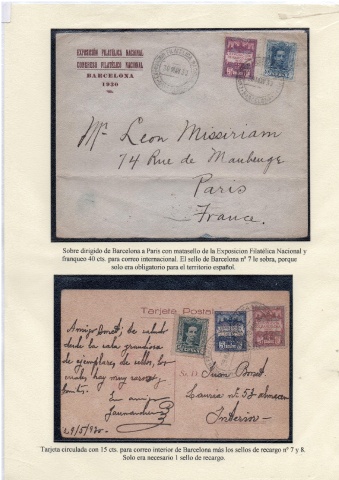 EXPOSICIÓN FILATÉLICA NACIONAL
CONGRESO FILATÉLICO NACIONAL
BARCELONA
1930
Mr Leon Missiriam
74 Rue de Maubeuge
Paris
France.
Sobre dirigido de Barcelona a Paris con matasello de la Exposicion Filatélica Nacional y
franqueo 40 cts. para correo internacional. El sello de Barcelona nº 7 le sobra, porque
solo era obligatorio para el territorio español.
Tarjeta Postal
Amigo Bonet, de saludo
desde la sala grandiosa
de ejemplares de sellos, los
cuales hay muy raros y
bonitos.
Tu amigo
29/5/930
Sr. D. Juan Bonet
Lauria nº 57
Interior
Tarjeta circulada con 15 cts. para correo interior de Barcelona más los sellos de recargo nº 7 y 8.
Solo era necesario 1 sello de recargo.